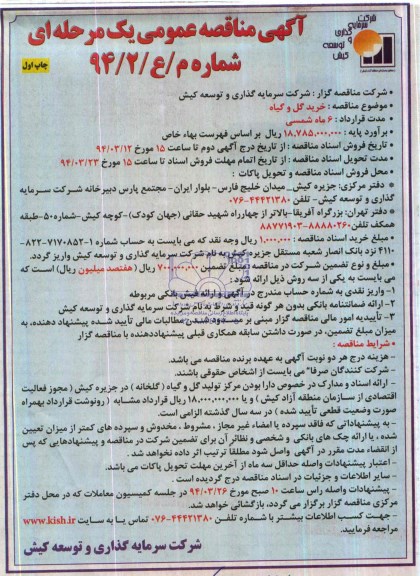 شرکت سرمایه گذاری و توسعه کیش
آگهی مناقصه عمومی یک مرحله ای
شماره م/ع/۹۴/۲
چاپ اول
• شرکت مناقصه گزار : شرکت سرمایه گذاری و توسعه کیش
• موضوع مناقصه : خرید گل و گیاه
• مدت قرارداد : ۶ ماه شمسی
• برآورد پایه : ۱۸,۷۸۵,۰۰۰,۰۰۰ ریال بر اساس فهرست بهاء خاص
• تاریخ فروش اسناد مناقصه : از تاریخ درج آگهی دوم تا ساعت ۱۵ مورخ ۹۴/۰۳/۱۲
• مدت تحویل اسناد مناقصه : از تاریخ اتمام مهلت فروش اسناد تا ساعت ۱۵ مورخ ۹۴/۰۳/۲۳
• محل فروش اسناد مناقصه و تحویل پاکات :
• دفتر مرکزی: جزیره کیش_ میدان خلیج فارس- بلوار ایران- مجتمع پارس دبیرخانه شرکت سرمایه
گذاری و توسعه کیش- تلفن ۴۴۴۲۱۳۸۰-۰۷۶
• دفتر تهران: بزرگراه آفریقا-بالاتر از چهارراه شهید حقانی (جهان کودک) -کوچه کیش-شماره۵۰-طبقه
همکف تلفن ۸۸۸۸۰۲۶۰-۸۸۷۷۱۹۰۳
• مبلغ خرید اسناد مناقصه : ۱,۰۰۰,۰۰۰ ریال وجه نقد که می بایست به حساب شماره ۱-۷۱۷۰۸۵۲-۸۲۲-
۴۱۱۰ نزد بانک انصار شعبه مستقل جزیره کیش به نام شرکت سرمایه گذاری و توسعه کیش واریز گردد.
• مبلغ و نوع تضمین شرکت در مناقصه : مبلغ تضمین ۷۰۰,۰۰۰,۰۰۰ ریال (هفتصد میلیون ریال) است که
می بایست به یکی از سه روش ذیل ارائه شود :
۱- واریز نقدی به شماره حساب مندرج در آگهی و ارائه فیش بانکی مربوطه
۲- ارائه ضمانتنامه بانکی بدون هر گونه قید و شرط به نام شرکت سرمایه گذاری و توسعه کیش
۳- تأییدیه امور مالی مناقصه گزار مبنی بر مسدود شدن مطالبات مالی تأیید شده پیشنهاد دهنده، به
میزان مبلغ تضمین، در صورت داشتن سابقه همکاری قبلی پیشنهاددهنده با مناقصه گزار
• شرایط مناقصه :
- هزینه درج هر دو نوبت آگهی به عهده برنده مناقصه می باشد.
- شرکت کنندگان صرفا" می بایست از اشخاص حقوقی باشند.
- ارائه اسناد و مدارک در خصوص دارا بودن مرکز تولید گل و گیاه ( گلخانه ) در جزیره کیش ( مجوز فعالیت
اقتصادی از سازمان منطقه آزاد کیش ) و یا ۱۸,۰۰۰,۰۰۰,۰۰۰ ریال قرارداد مشابه ( رونوشت قرارداد بهمراه
صورت وضعیت قطعی تأیید شده ) در سه سال گذشته الزامی است.
- به پیشنهاداتی که فاقد سپرده یا امضاء غیر مجاز ، مشروط ، مخدوش و سپرده های کمتر از میزان تعیین
شده ، یا ارائه چک های بانکی و شخصی و نظائر آن برای تضمین شرکت در مناقصه و پیشنهادهایی که پس
از انقضاء مدت مقرر در آگهی واصل شود مطلقا ترتیب اثر داده نخواهد شد .
- اعتبار پیشنهادات واصله حداقل سه ماه از آخرین مهلت تحویل پاکات می باشد.
- سایر اطلاعات و جزئیات در اسناد مناقصه درج گردیده است .
- پیشنهادات واصله راس ساعت ۱۰ صبح مورخ ۹۴/۰۳/۲۶ در جلسه کمیسیون معاملات که در محل دفتر
مرکزی مناقصه گزار برگزار می گردد، بازگشائی خواهد شد.
- جهت کسب اطلاعات بیشتر با شماره تلفن ۴۴۴۲۱۳۸۰-۰۷۶ تماس یا به سایت www.kish.ir
مراجعه فرمایید.
شرکت سرمایه گذاری و توسعه کیش